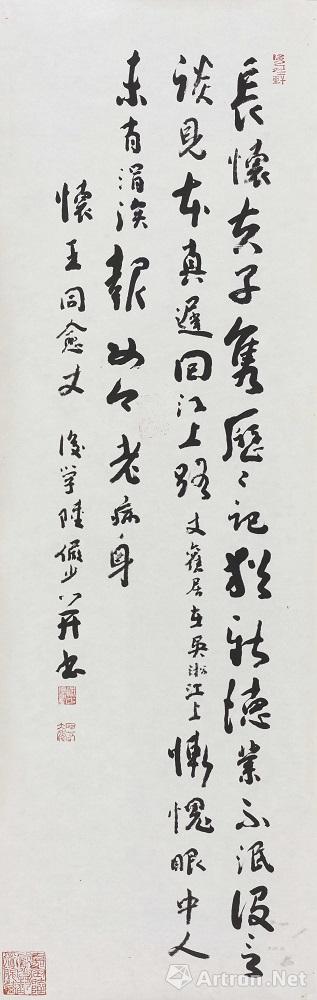 長懷夫子雋歷〻記猶新德業不泯沒言
談見本真遲回江上路丈舊居在吳淞江上慚愧眼中人
未有涓埃報如今老病身
懷王同愈丈 後學陸儼少并書
Artron.Net